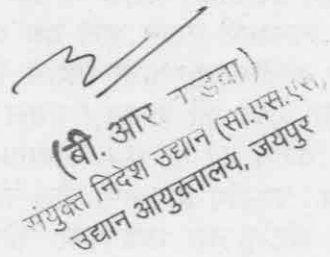 (बी. आर कड़वा)
संयुक्त निदेश उद्यान (सी.एस.एस,
उद्यान आयुक्तालय, जयपुर